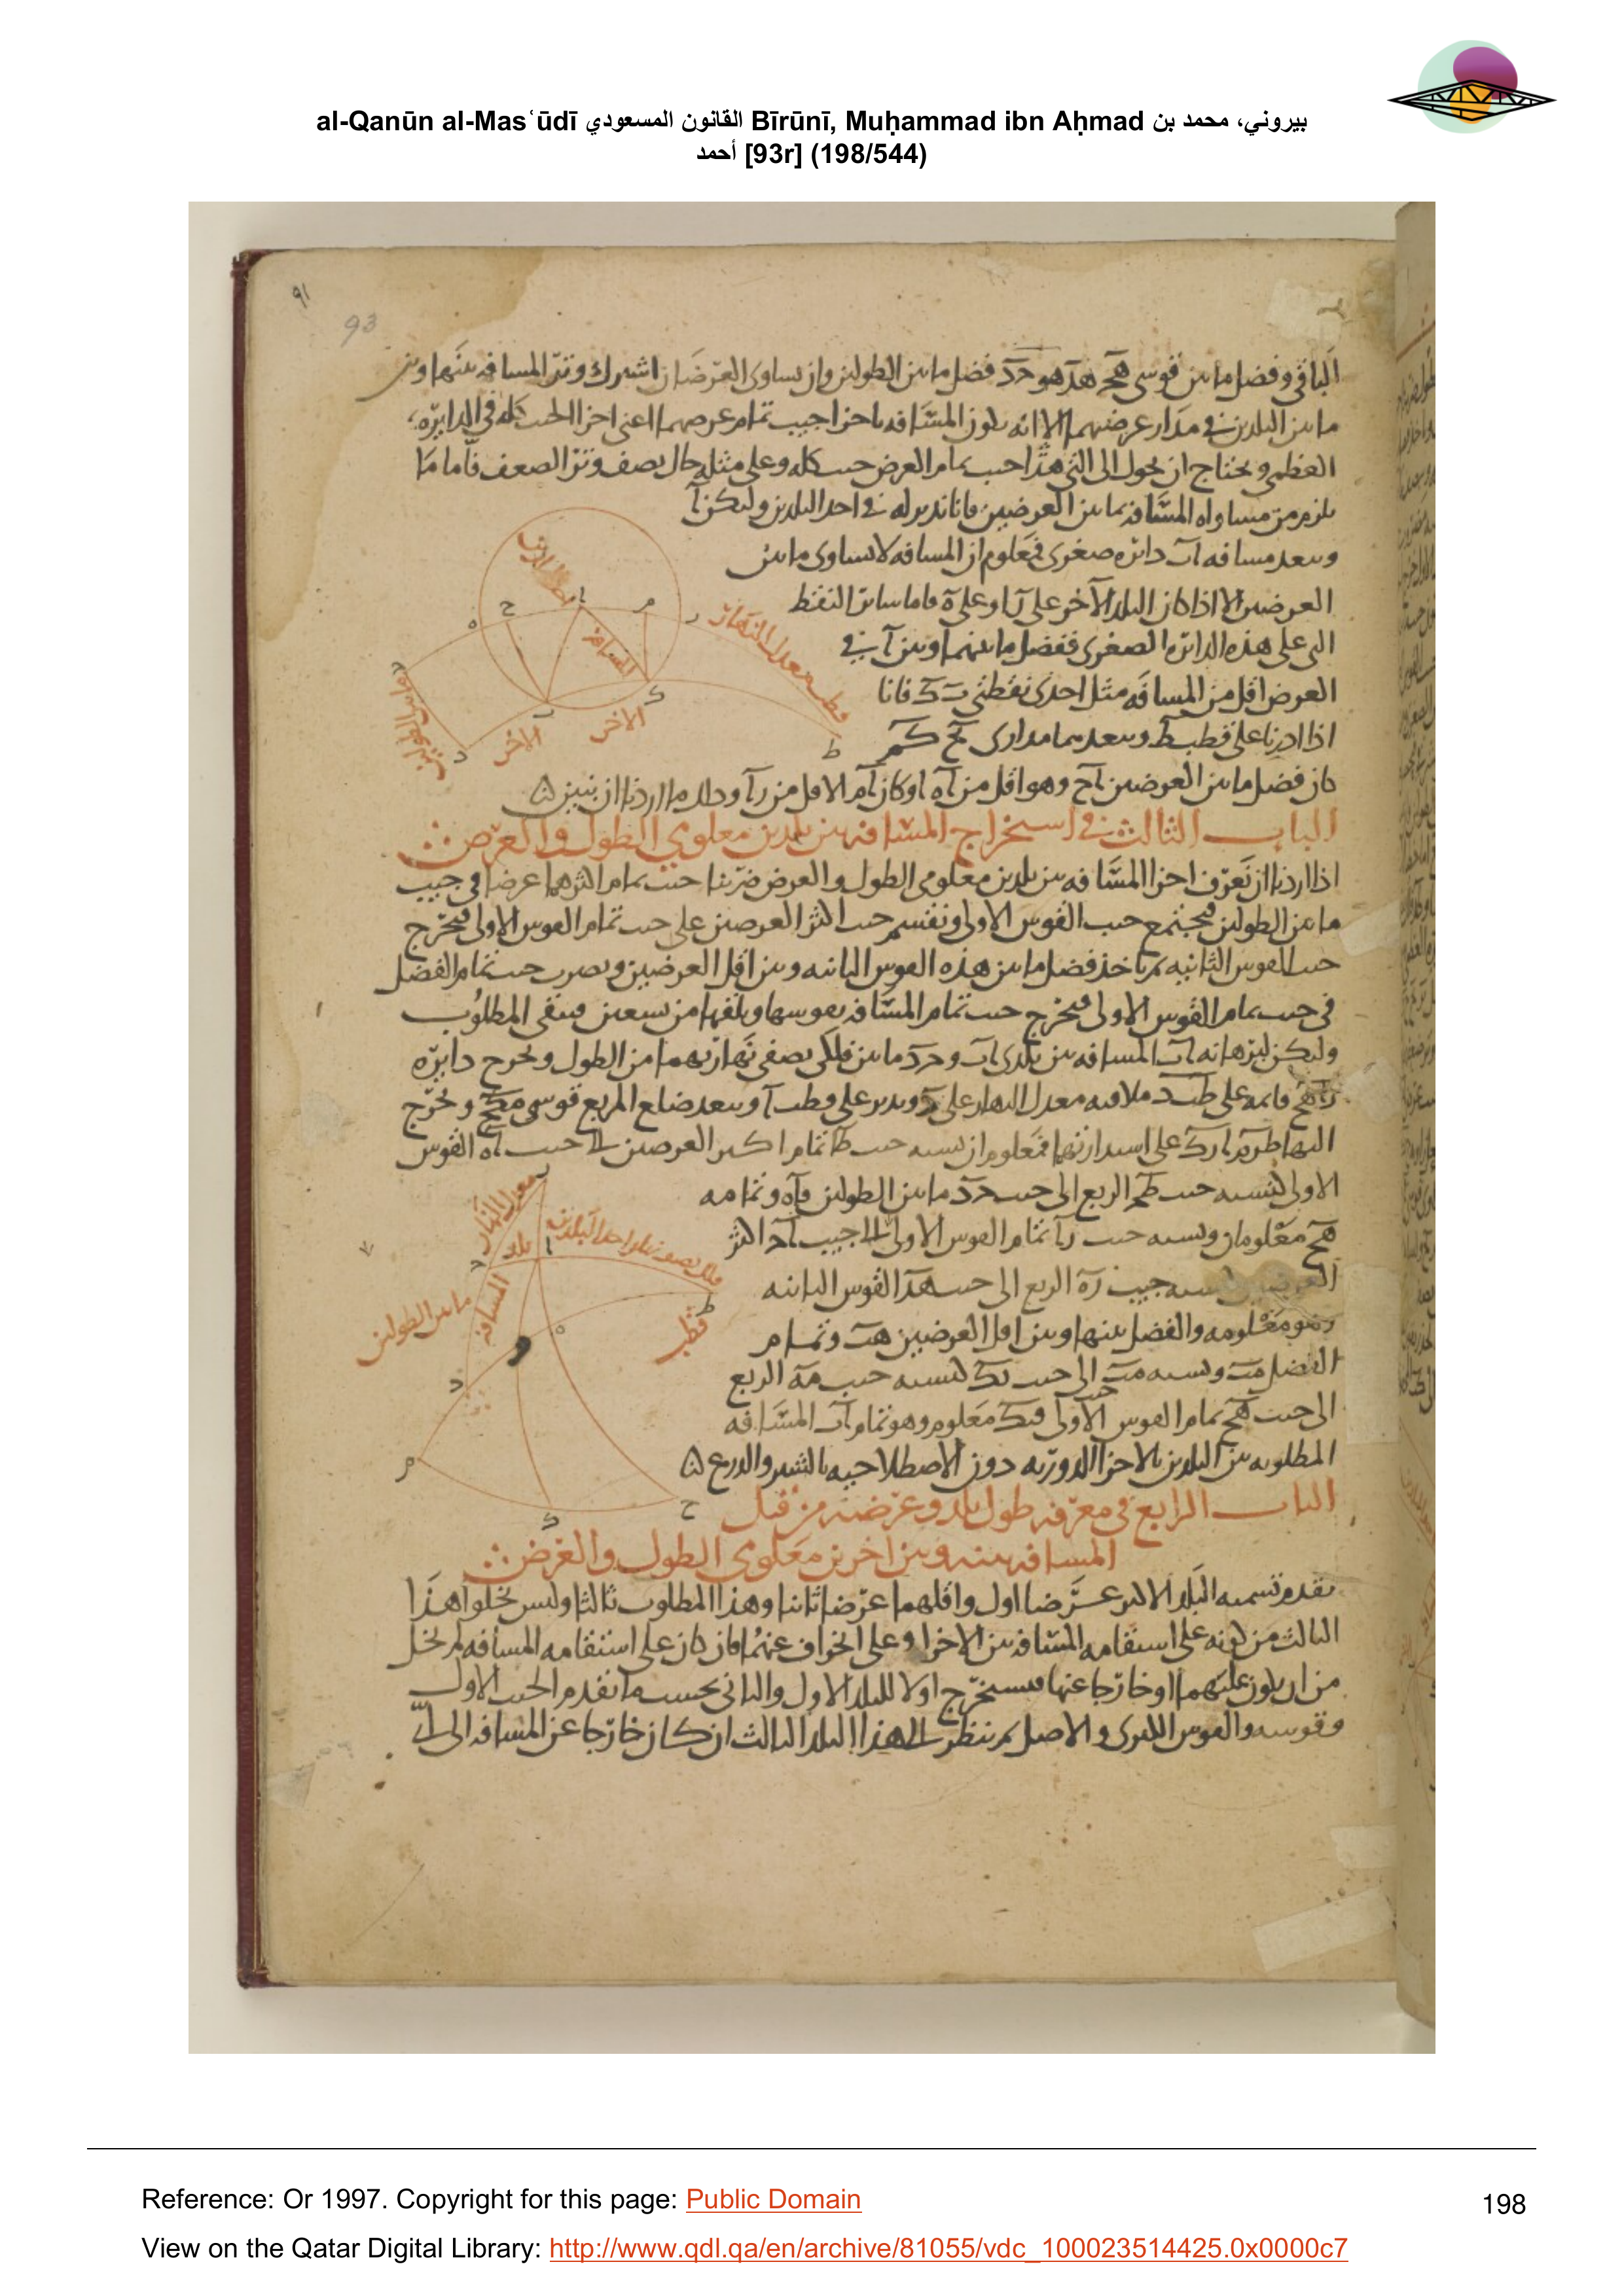 al-Qanūn al-Masʿūdī القانون المسعودي Bīrūnī, Muḥammad ibn Aḥmad بيروني، محمد بن
أحمد [93r] (198/544)
٩١
93
الباقي وفضل ما بين قوسي هج هد هو حد فضل ما بين الطولين وان تساوى العرضان اشترك وتر المسافه بينها وبين
ما بين البلدين في مدار عرضهما الا انه يكون المسافه باجزا جيب تمام عرضهما اعني اجزا الجيب كله في الدايره
العظمى ويحتاج ان يحول الى التي هذا جيب تمام العرض جيب كله وعلى مثله حال نصف وتر الضعف فاما ما
يلزم من مساواه المسافه ما بين العرضين فانا ندير له في احد البلدين وليكن آ
وببعد مسافه آب دائره صغرى فمعلوم ان المسافه لا تساوى ما بين
العرضين الا اذا كان البلد الآخر على ر او على ه فاما سائر النقط
التي على هذه الدائره الصغرى ففضل ما بينهما وبين آ في
العرض اقل من المسافه مثل احدى نقطتي ب ك فانا
اذا ادرنا على قطب ط وببعدهما مدارى بح كم
كان فضل ما بين العرضين آح وهو اقل من آه او كان آم الاقل من رآ وذلك ما اردنا ان نبين
الباب الثالث في استخراج المسافه بين بلدين معلومي الطول والعرض
اذا اردنا ان نعرف اجزا المسافه بين بلدين معلومي الطول والعرض ضربنا جيب تمام اكثرهما عرضا في جيب
ما بين الطولين فيجتمع جيب القوس الاولى ونقسم جيب اكثر العرضين على جيب تمام القوس الاولى فيخرج
جيب القوس الثانيه ثم ناخذ فضل ما بين هذه القوس الثانيه وبين اقل العرضين ونضرب جيب تمام الفضل
في جيب تمام القوس الاولى فيخرج جيب تمام المسافه نقوسها ونلقها من تسعين فيبقى المطلوب
وليكن لبرهانه آب المسافه بين بلدى آب وحد ما بين فلكي نصفي نهاريهما من الطول ونخرج دايره
راهح قائمه على طبد ملاقيه معدل النهار على وندير على قطب آ وببعد ضلع المربع قوسي مكح ونخرج
اليها طرم ابك على استدارتها فمعلوم ان نسبه جيب طا تمام اكبر العرضين الى جيب آه القوس
الاولى كنسبه جيب طح الربع الى جيب حد ما بين الطولين فآه وتمامه
هح معلومان ونسبه جيب رآ تمام القوس الاولى الى جيب آح اكثر
العرضين كنسبه جيب ره الربع الى جيب هد القوس الثانيه
فهو معلومه والفضل بينها وبين اقل العرضين هب وتمام
الفضل مب ونسبه مب الى جيب بك كنسبه جيب مه الربع
الى جيب هح تمام القوس الاولى فبك معلوم وهو تمام آب المسافه
المطلوبه بين البلدين بالاجزا الدوريه دون الاصطلاحيه بالشبر والذرع
الباب الرابع في معرفه طول بلد وعرضه من قبل
المسافه بينه وبين اخرين معلومي الطول والعرض
نقدم تسميه البلد الاكبر عرضا اول واقلهما عرضا ثانيا وهذا المطلوب ثالثا وليس يخلوا هذا
الثالث من كونه على استقامه المسافه بين الاخرا وعلى انحراف عنهما فان كان على استقامه المسافه لم يخل
من ان يكون عليهما او خارجا عنها فنستخرج اولا للبلد الاول والثاني بحسب ما تقدم الجيب الاول
وقوسه والقوس الكبرى والاصل ثم ننظر الى هذا البلد الثالث ان كان خارجا عن المسافه الى
قطب معدل النهار
المسافه
الاخر
الاخر
معدل النهار
بلد
فلك نصف نهار احد البلدين
المسافه
ما بين الطولين
قطب
Reference: Or 1997. Copyright for this page: Public Domain
198
View on the Qatar Digital Library: http://www.qdl.qa/en/archive/81055/vdc_100023514425.0x0000c7